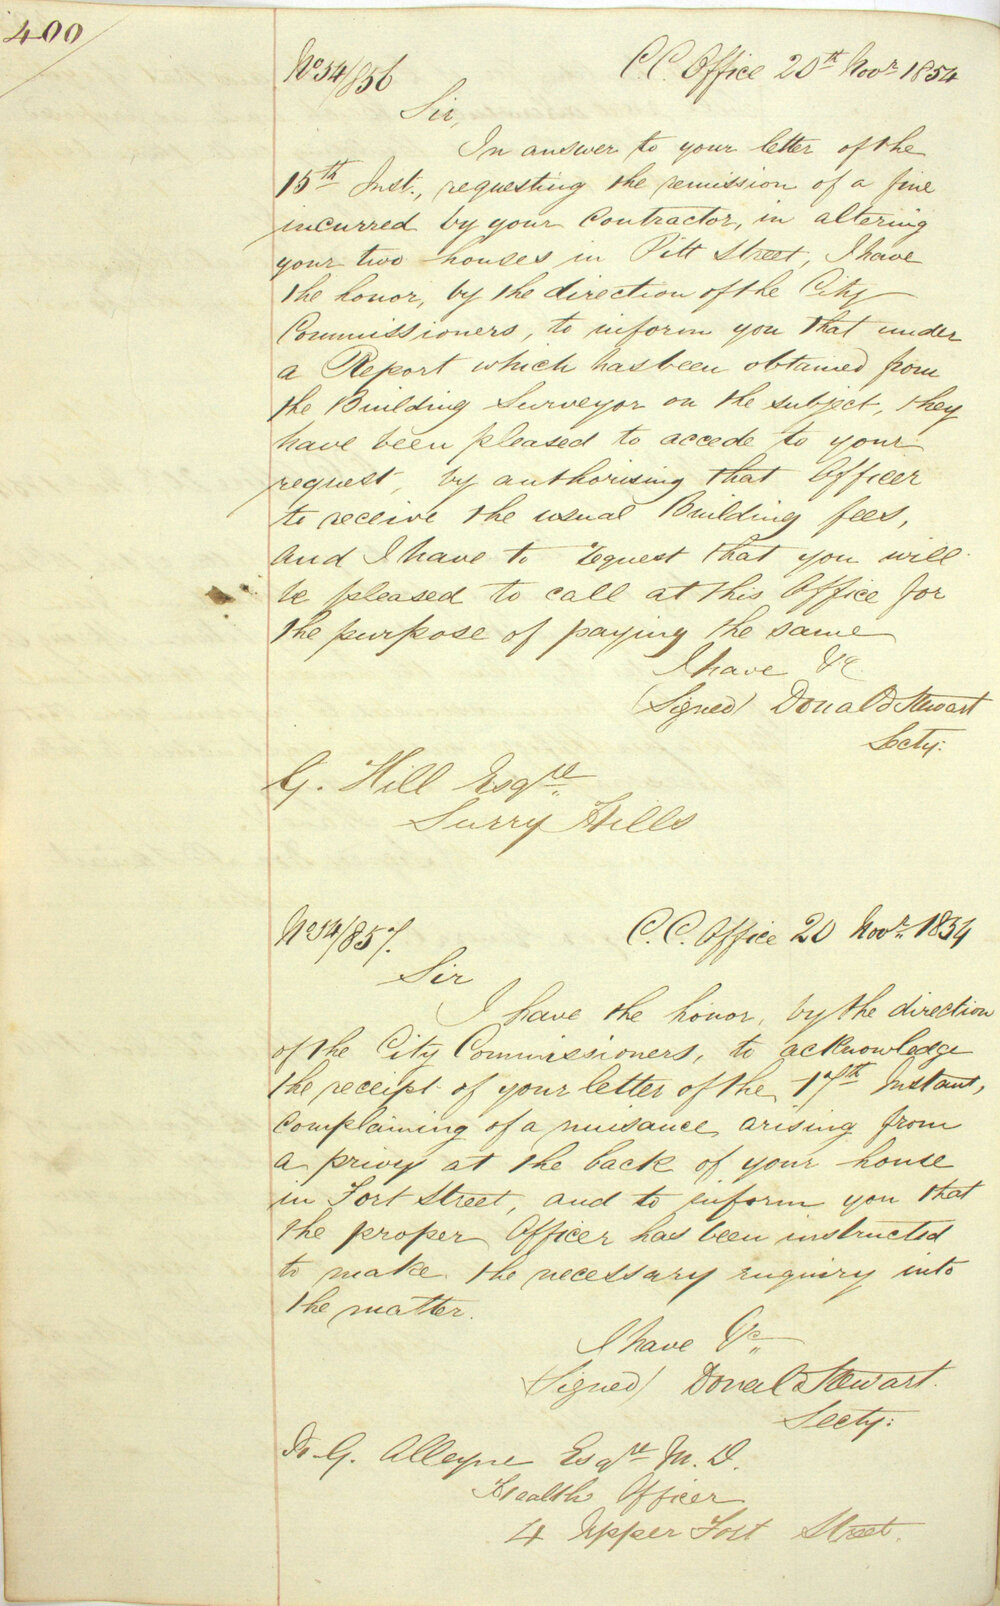 400
No 54/856 C.C. Office 20th Novr 1854
Sir,
In answer to your letter of the
15th Inst., requesting the remission of a fine
incurred by your Contractor, in altering
your two houses in Pitt Street, I have
the honor, by the direction of the City
Commissioners, to inform you that under
a Report which has been obtained from
the Building Surveyor on the subject, they
have been pleased to accede to your
request, by authorising that Officer
to receive the usual Building fees,
and I have to request that you will
be pleased to call at this Office for
the purpose of paying the same
I have &c
(Signed) Donald Stewart
Secty:
G. Hill Esqre
Surry Hills
No 54/857. C.C. Office 20 Novr. 1854
Sir
I have the honor, by the direction
of the City Commissioners, to acknowledge
the receipt of your letter of the 17th Instant,
complaining of a nuisance arising from
a privy at the back of your house
in Fort Street, and to inform you that
the proper Officer has been instructed
to make the necessary enquiry into
the matter.
I have &c
(Signed) Donald Stewart.
Secty:
G. Alleyne Esqre M.D.
Health Officer
4 Upper Fort Street.